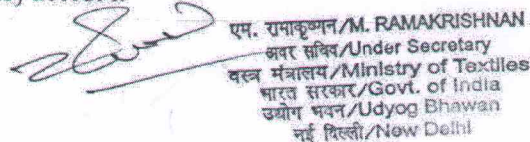 एम. रामाकृष्णन/M. RAMAKRISHNAN
अवर सचिव/Under Secretary
वस्त्र मंत्रालय/Ministry of Textiles
भारत सरकार/Govt. of India
उद्योग भवन/Udyog Bhawan
नई दिल्ली/New Delhi